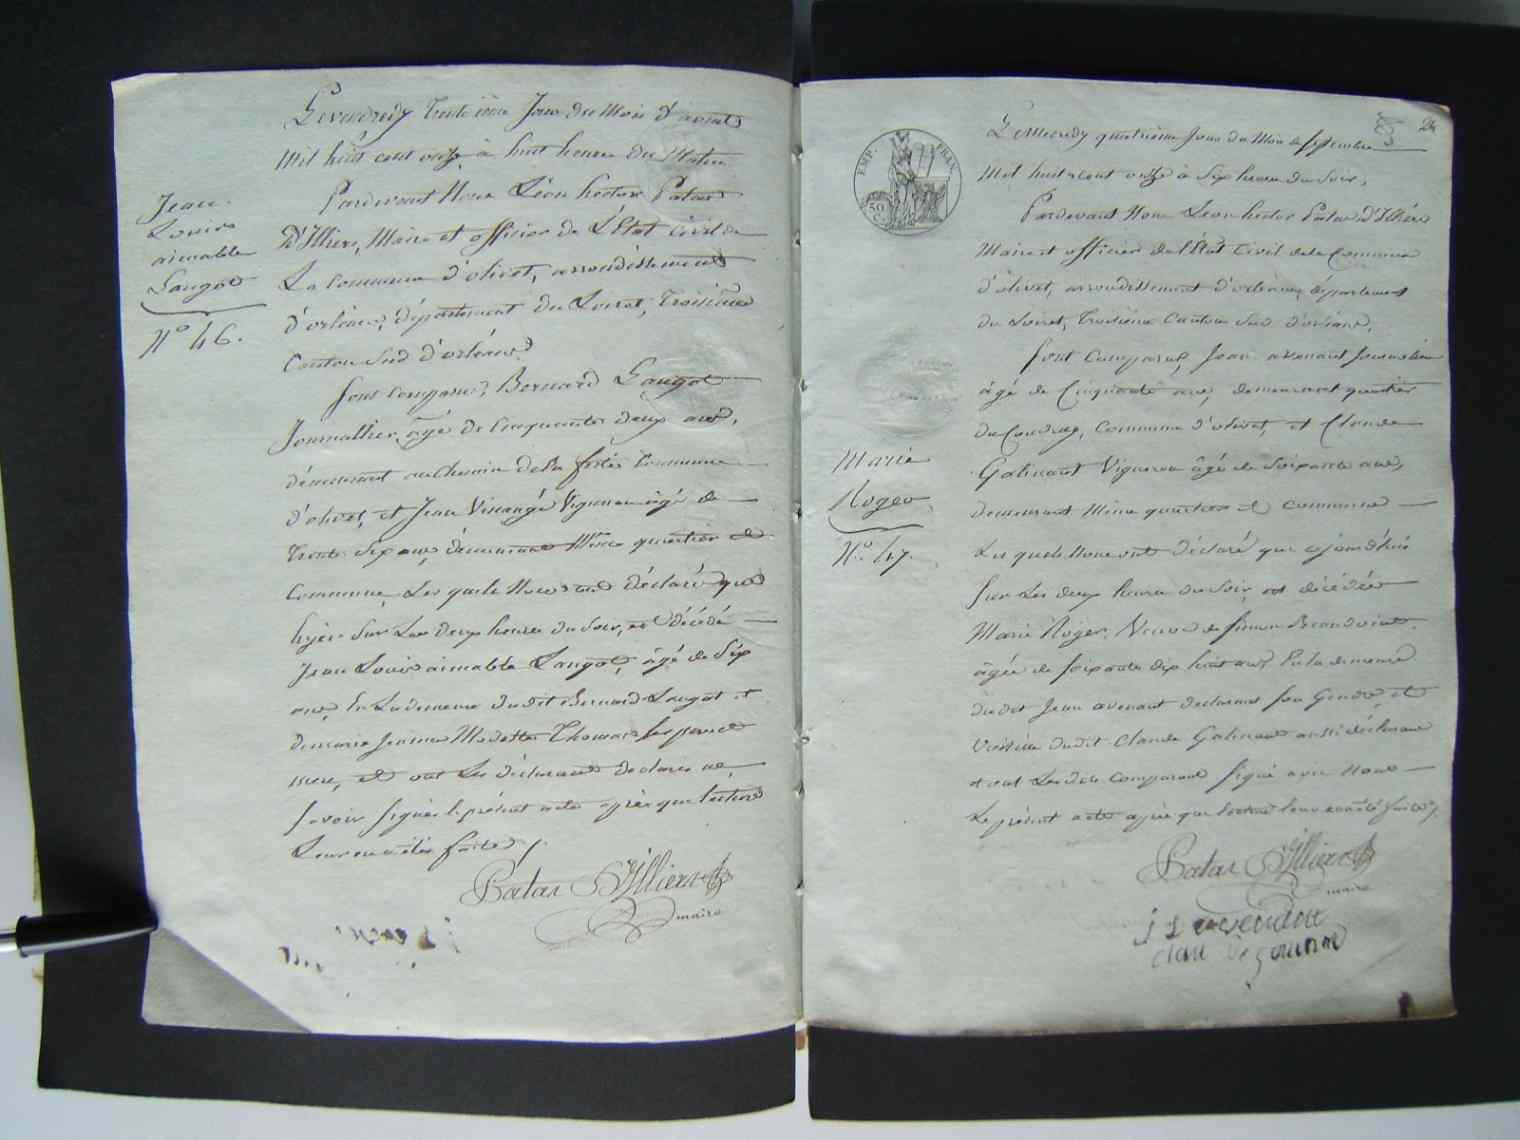 Le vendredy trentième Jour du Mois d'aoust
Mil huit cent onze à huit heures du Matin
Jean
Louis
aimable
Laugot
N.° 46.
Pardevant Nous Léon hector Patas
D'Illiers, Maire et officier de L'État Civil de
La Commune d'olivet, arrondissement
d'orléans, département du Loiret, Troisième
Canton Sud d'orléans
Sont comparus, Bernard Laugot
Journallier, âgé de Cinquante deux ans,
demeurant au chemin de La ferté Commune
d'olivet, et Jean Vigneron âgé de
Trente Six ans, demeurant Même quartier et
Commune, Les quels Nous ont déclaré que
hyer Sur Les deux heures du Soir, est décédé
Jean Louis aimable Laugot, âgé de Six
ans, En La demeure dudit Bernard Laugot et
de marie Jeanne Modeste Thomas Ses pere et
mere, et ont Les déclarants déclarés ne
Savoir Signer le présent acte après que lecture
Leur en a été faite
Patas D'Illiers
maire
24
Le Mercredy quatrième Jour du Mois de Septembre
Mil huit cent onze à Six heures du Soir,
EMP. FRAN.
50 C.
Pardevant Nous Léon hector Patas D'Illiers
Maire et officier de l'État Civil de la Commune
d'olivet, arrondissement d'orléans, département
du Loiret, Troisième Canton Sud d'orléans,
Sont Comparus, Jean avenant Journalier
âgé de Cinquante ans, demeurant quartier
du Coudray, Commune d'olivet, et Claude
Marie
Roger
N.° 47.
Galinant Vigneron âgé de Soixante ans,
demeurant Même quartier et commune
Les quels Nous ont déclaré que cejourd'hui
Sur Les deux heures du Soir, est décédée
Marie Roger, Veuve de Simon
âgée de Soixante dix huit ans En la demeure
dudit Jean avenant déclarant Son Gendre, et
Voisine dudit Claude Galinant aussi déclarant
et ont Lesdits comparants Signé avec Nous
Le présent acte après que lecture leur en a été faite
Patas D'Illiers
maire